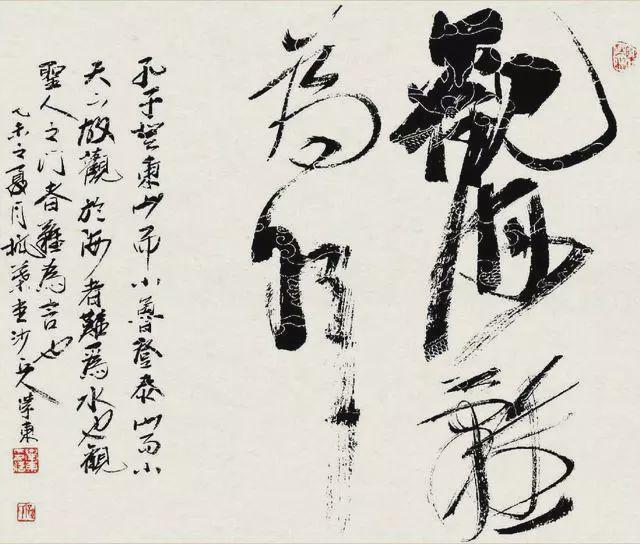 觀海難
為水
孔子登東山而小魯登泰山而小
天下故觀於海者難爲水也觀
聖人之門者難為言也
乙未之夏月